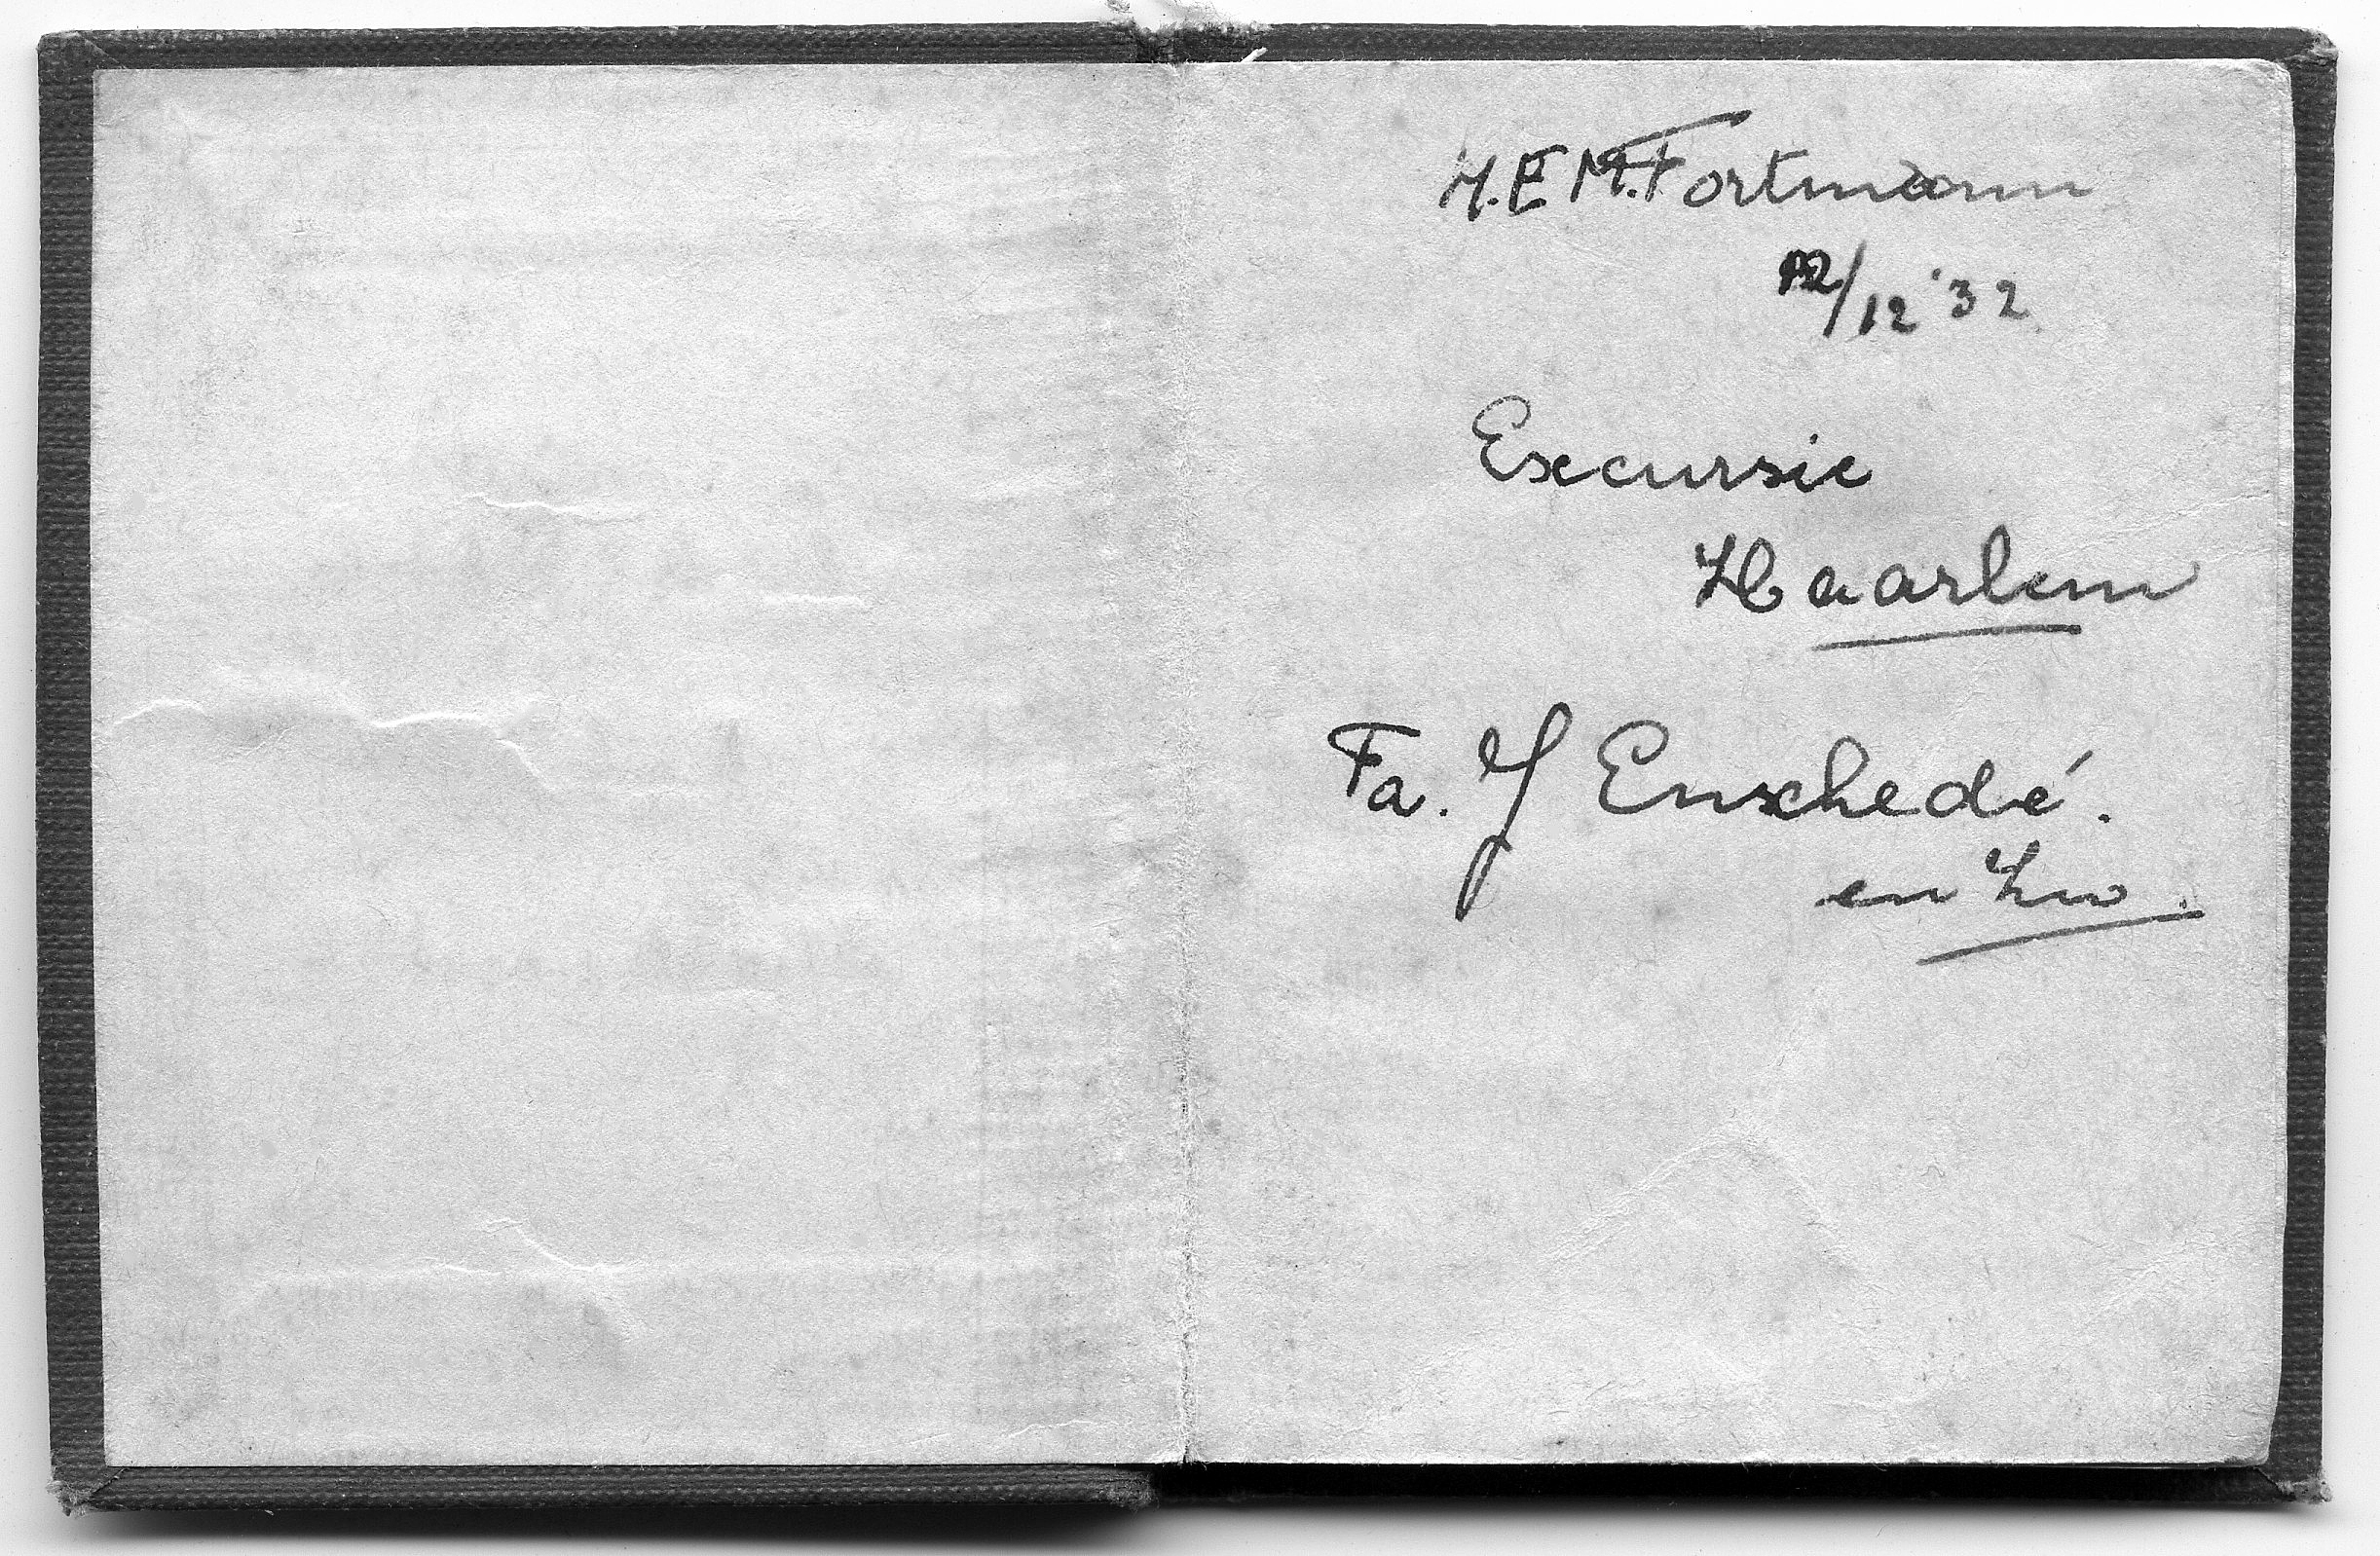 H.E.M. Fortmann
12/12 '32
Excursie
Haarlem
Fa. J Enschedé.
en Zn.